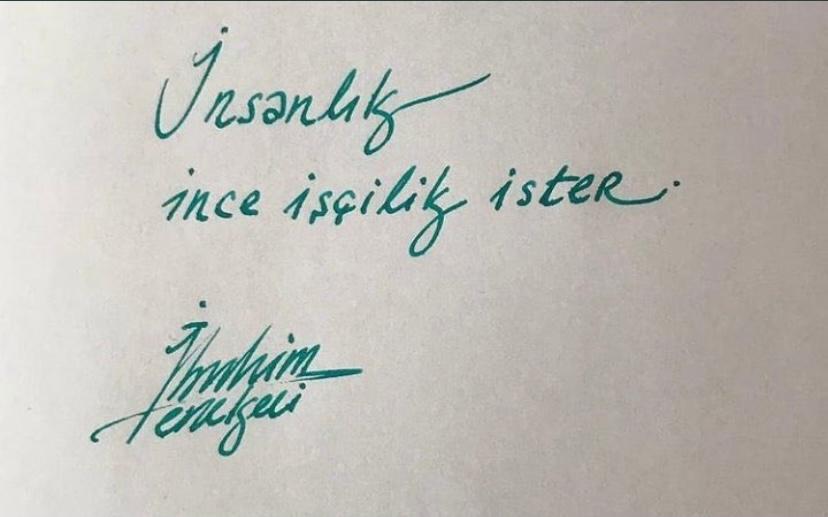 İnsanlık
ince işçilik ister.
İbrahim
Tenekeci